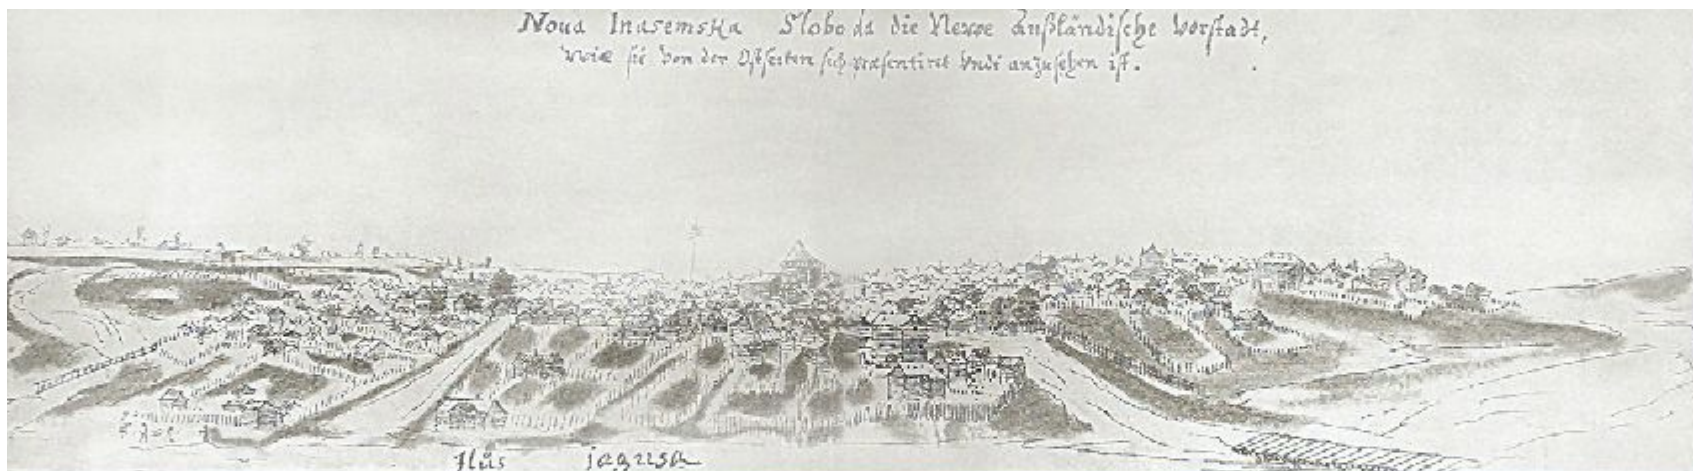 Noua Inasemska Sloboda die Newe Außländische Vorstadt,
wie sie von der Ostseiten sich præsentiret vndt anzusehen ist.
Flüs jagusa